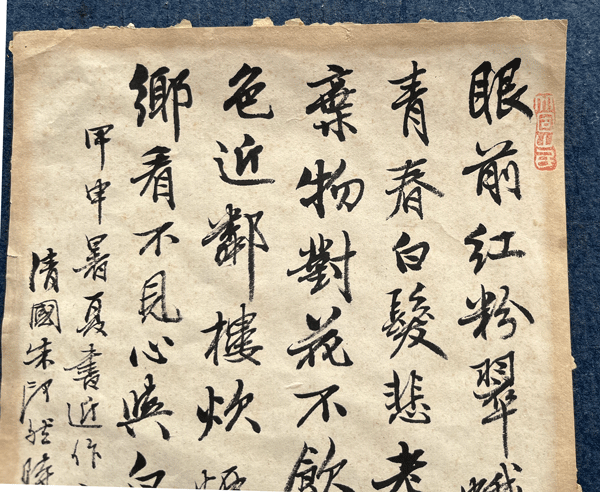 眼前紅粉翠
青春白髮悲老
棄物對花不飲
色近鄰樓炊
鄉看不見心與白
甲申暑夏書近作
清國朱